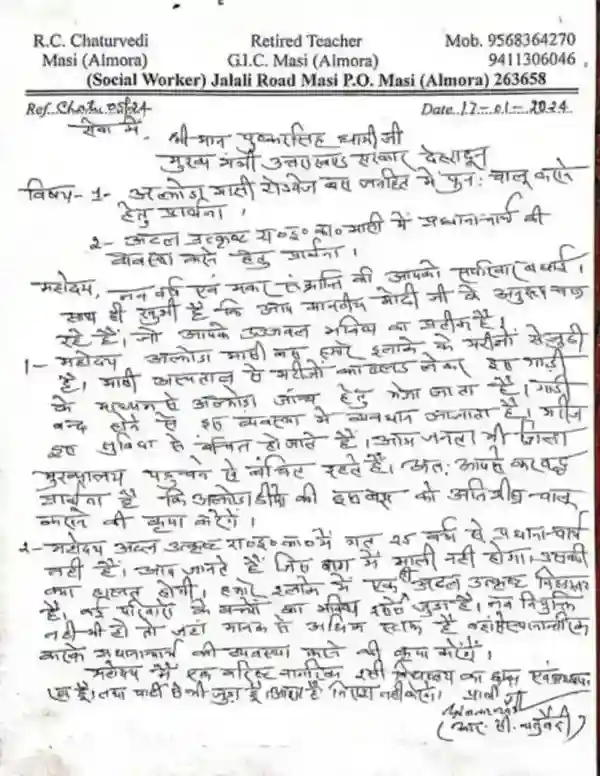 R.C. Chaturvedi Retired Teacher Mob. 9568364270
Masi (Almora) G.I.C. Masi (Almora) 9411306046
(Social Worker) Jalali Road Masi P.O. Masi (Almora) 263658
Ref. Chatu 05/24 Date 17-01-2024
सेवा में,
श्रीमान पुष्करसिंह धामी जी
मुख्य मंत्री उत्तराखण्ड सरकार देहरादून
विषय- 1- अल्मोडा मासी रोडवेज बस जनहित में पुन: चालू करने
हेतु प्रार्थना ।
2- अटल उत्कृष्ट रा०इ०का० मासी में प्रधानाचार्य की
व्यवस्था करने हेतु प्रार्थना ।
महोदय, नव वर्ष एवं मकर संक्रान्ति की आपको सपरिवार बधाई ।
साथ ही खुशी है कि आप माननीय मोदी जी के अनुरूप चल
रहे हैं, जो आपके उज्जवल भविष्य का प्रतीक है ।
1- महोदय अल्मोडा मासी बस हमारे इलाके के मरीजों से जुडी
है। मासी अस्पताल से मरीजों का ब्लड लेकर इस गाडी
के माध्यम से अल्मोडा जांच हेतु भेजा जाता है । गाडी
बन्द होने से इस व्यवस्था में व्यवधान आजाता है । मरीज
इस सुविधा से वंचित हो जाते हैं । आम जनता भी जिला
मुख्यालय पहुचने से वंचित रहते हैं। अत: आपसे करवद्ध
प्रार्थना है कि अल्मोडा डीपो की इस बस को अतिशीघ्र चालू
कराने की कृपा करेंगे ।
2- महोदय अटल उत्कृष्ट रा०इ०का० में गत 25 वर्ष से प्रधानाचार्य
नही हैं । आप जानते हैं जिस बाग में माली नही होगा उसकी
क्या हालत होगी । हमारे इलाके में एक ही अटल उत्कृष्ट विद्यालय
है, कई परिवारों के बच्चों का भविष्य इससे जुडा है । नव नियुक्ति
नही भी हो तो जहां मानक से अधिक स्टाफ है वहां से स्थानान्तरित
करके प्रधानाचार्य की व्यवस्था करने की कृपा करेंगे ।
महोदय मैं एक वरिष्ट नागरिक इसी विद्यालय का छात्र एवं अध्यापक
रहा हूँ तथा पार्टी से भी जुडा हूँ । आशा है निराश नही करेंगे । प्रार्थी
(आर. सी. चतुर्वेदी)